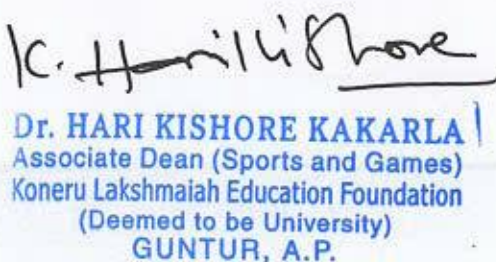 K. Hari Kishore
Dr. HARI KISHORE KAKARLA
Associate Dean (Sports and Games)
Koneru Lakshmaiah Education Foundation
(Deemed to be University)
GUNTUR, A.P.